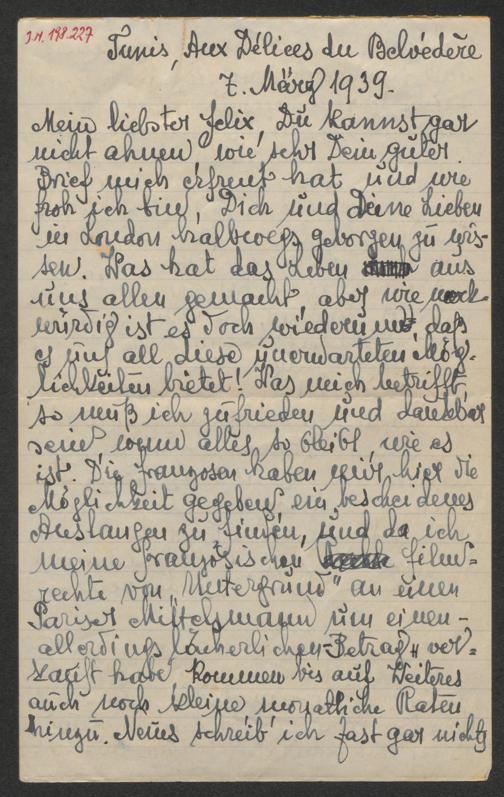 J.N. 198.227
Tunis, Aux Délices du Belvédère
7. März 1939.
Mein liebster Felix, Du kannst gar
nicht ahnen wie sehr Dein guter
Brief mich erfreut hat und wie
froh ich bin, Dich und Deine Lieben
in London halbwegs geborgen zu wis-
sen. Was hat das Leben aus
uns allen gemacht, aber wie merk-
würdig ist es doch wiederum, daß
es uns all diese unerwarteten Mög-
lichkeiten bietet! Was mich betrifft,
so muß ich zufrieden und dankbar
sein wenn alles so bleibt, wie es
ist. Die Franzosen haben mir hier die
Möglichkeit gegeben ein bescheidenes
Auslangen zu finden, und da ich
meine französischen Film-
rechte von „Untergrund" an einen
Pariser Mittelsmann um einen -
allerdings lächerlichen - Betrag ver-
kauft habe kommen bis auf Weiteres
auch noch kleine monatliche Raten
hinzu. Neues schreib' ich fast gar nichts